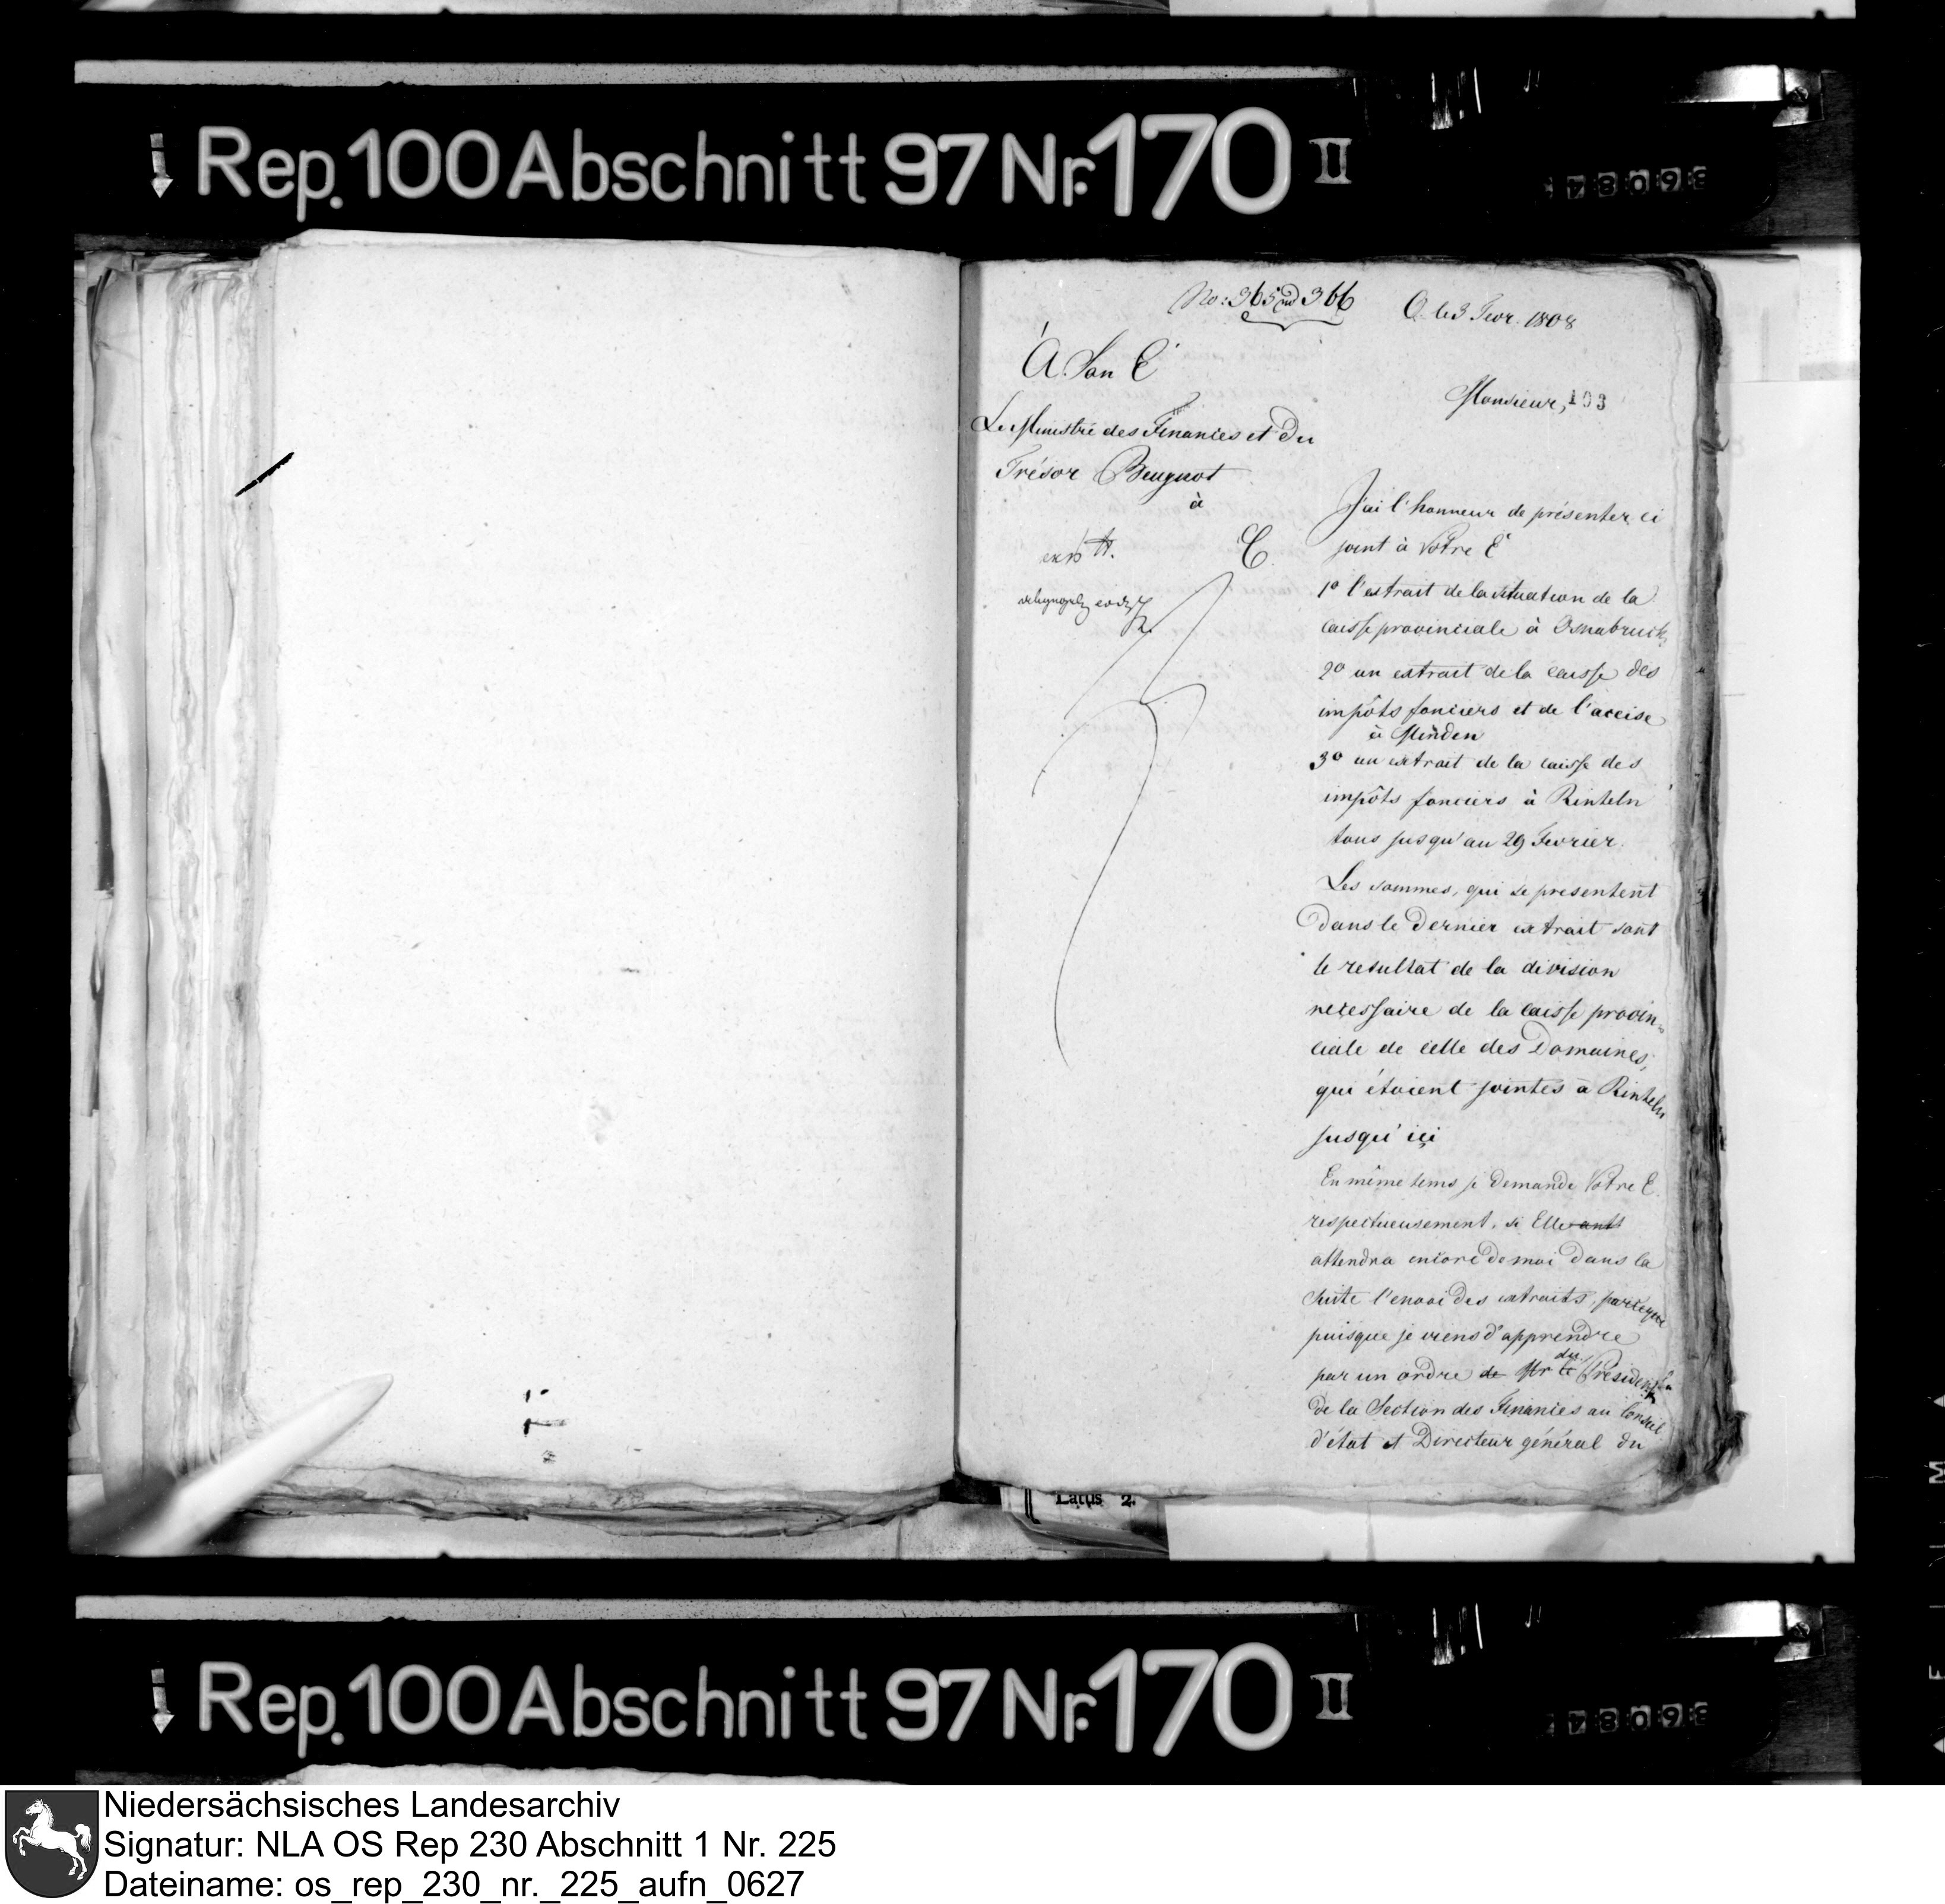 Rep. 100 Abschnitt 97 Nr. 170 II
No: 365 und 366
O. le 3 Fevr. 1808
À Son E
Monsieur,
103
Le Ministre des Finances et du
Trésor Beugnot
à
C.
J'ai l'honneur de présenter ci
joint à Votre E
1º l'extrait de la situation de la
caisse provinciale à Osnabruck,
2º un extrait de la caisse des
impôts fonciers et de l'accise
à Minden
3º un extrait de la caisse des
impôts fonciers à Rinteln
tous jusqu'au 29 Fevrier.
Les sommes, qui se presentent
dans le dernier extrait sont
le resultat de la division
necessaire de la caisse provin=
ciale de celle des Domaines,
qui étoient jointes à Rinteln
jusqu'ici
En même tems je demande Votre E.
respectueusement, si Elle
attendra encore de moi dans la
suite l'envoi des extraits, parceque
puisque je viens d'apprendre
par un ordre de Mr le du Président
de la Section des Finances au Conseil
d'état et Directeur général du
Latus 2.
Rep. 100 Abschnitt 97 Nr. 170 II
Niedersächsisches Landesarchiv
Signatur: NLA OS Rep 230 Abschnitt 1 Nr. 225
Dateiname: os_rep_230_nr._225_aufn_0627